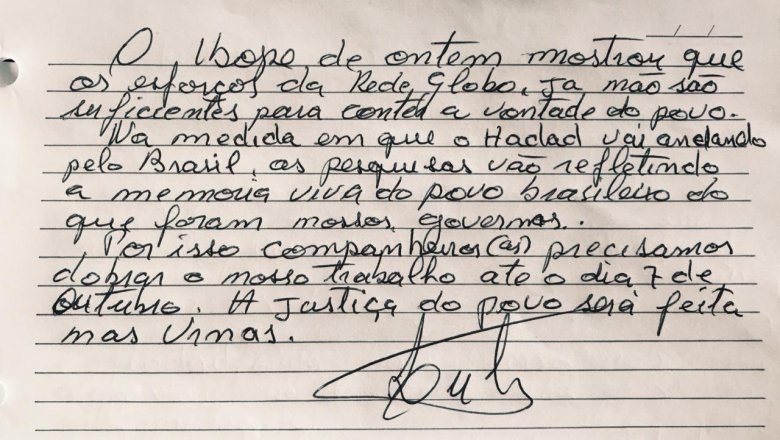 O Ibope de ontem mostrou que
os esforços da Rede Globo, ja não são
suficientes para conter a vontade do povo.
Na medida em que o Hadad vai andando
pelo Brasil, as pesquisas vão refletindo
a memoria viva do povo brasileiro do
que foram nossos governos.
Por isso companheiros(as) precisamos
dobrar o nosso trabalho ate o dia 7 de
Outubro. A Justiça do povo será feita
nas urnas.
Lula